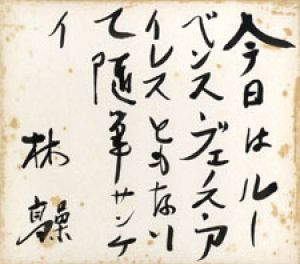 今日はルー
ベンス・ヴェノス・ア
イレスともなり
て随筆サンケ
イ
林髞